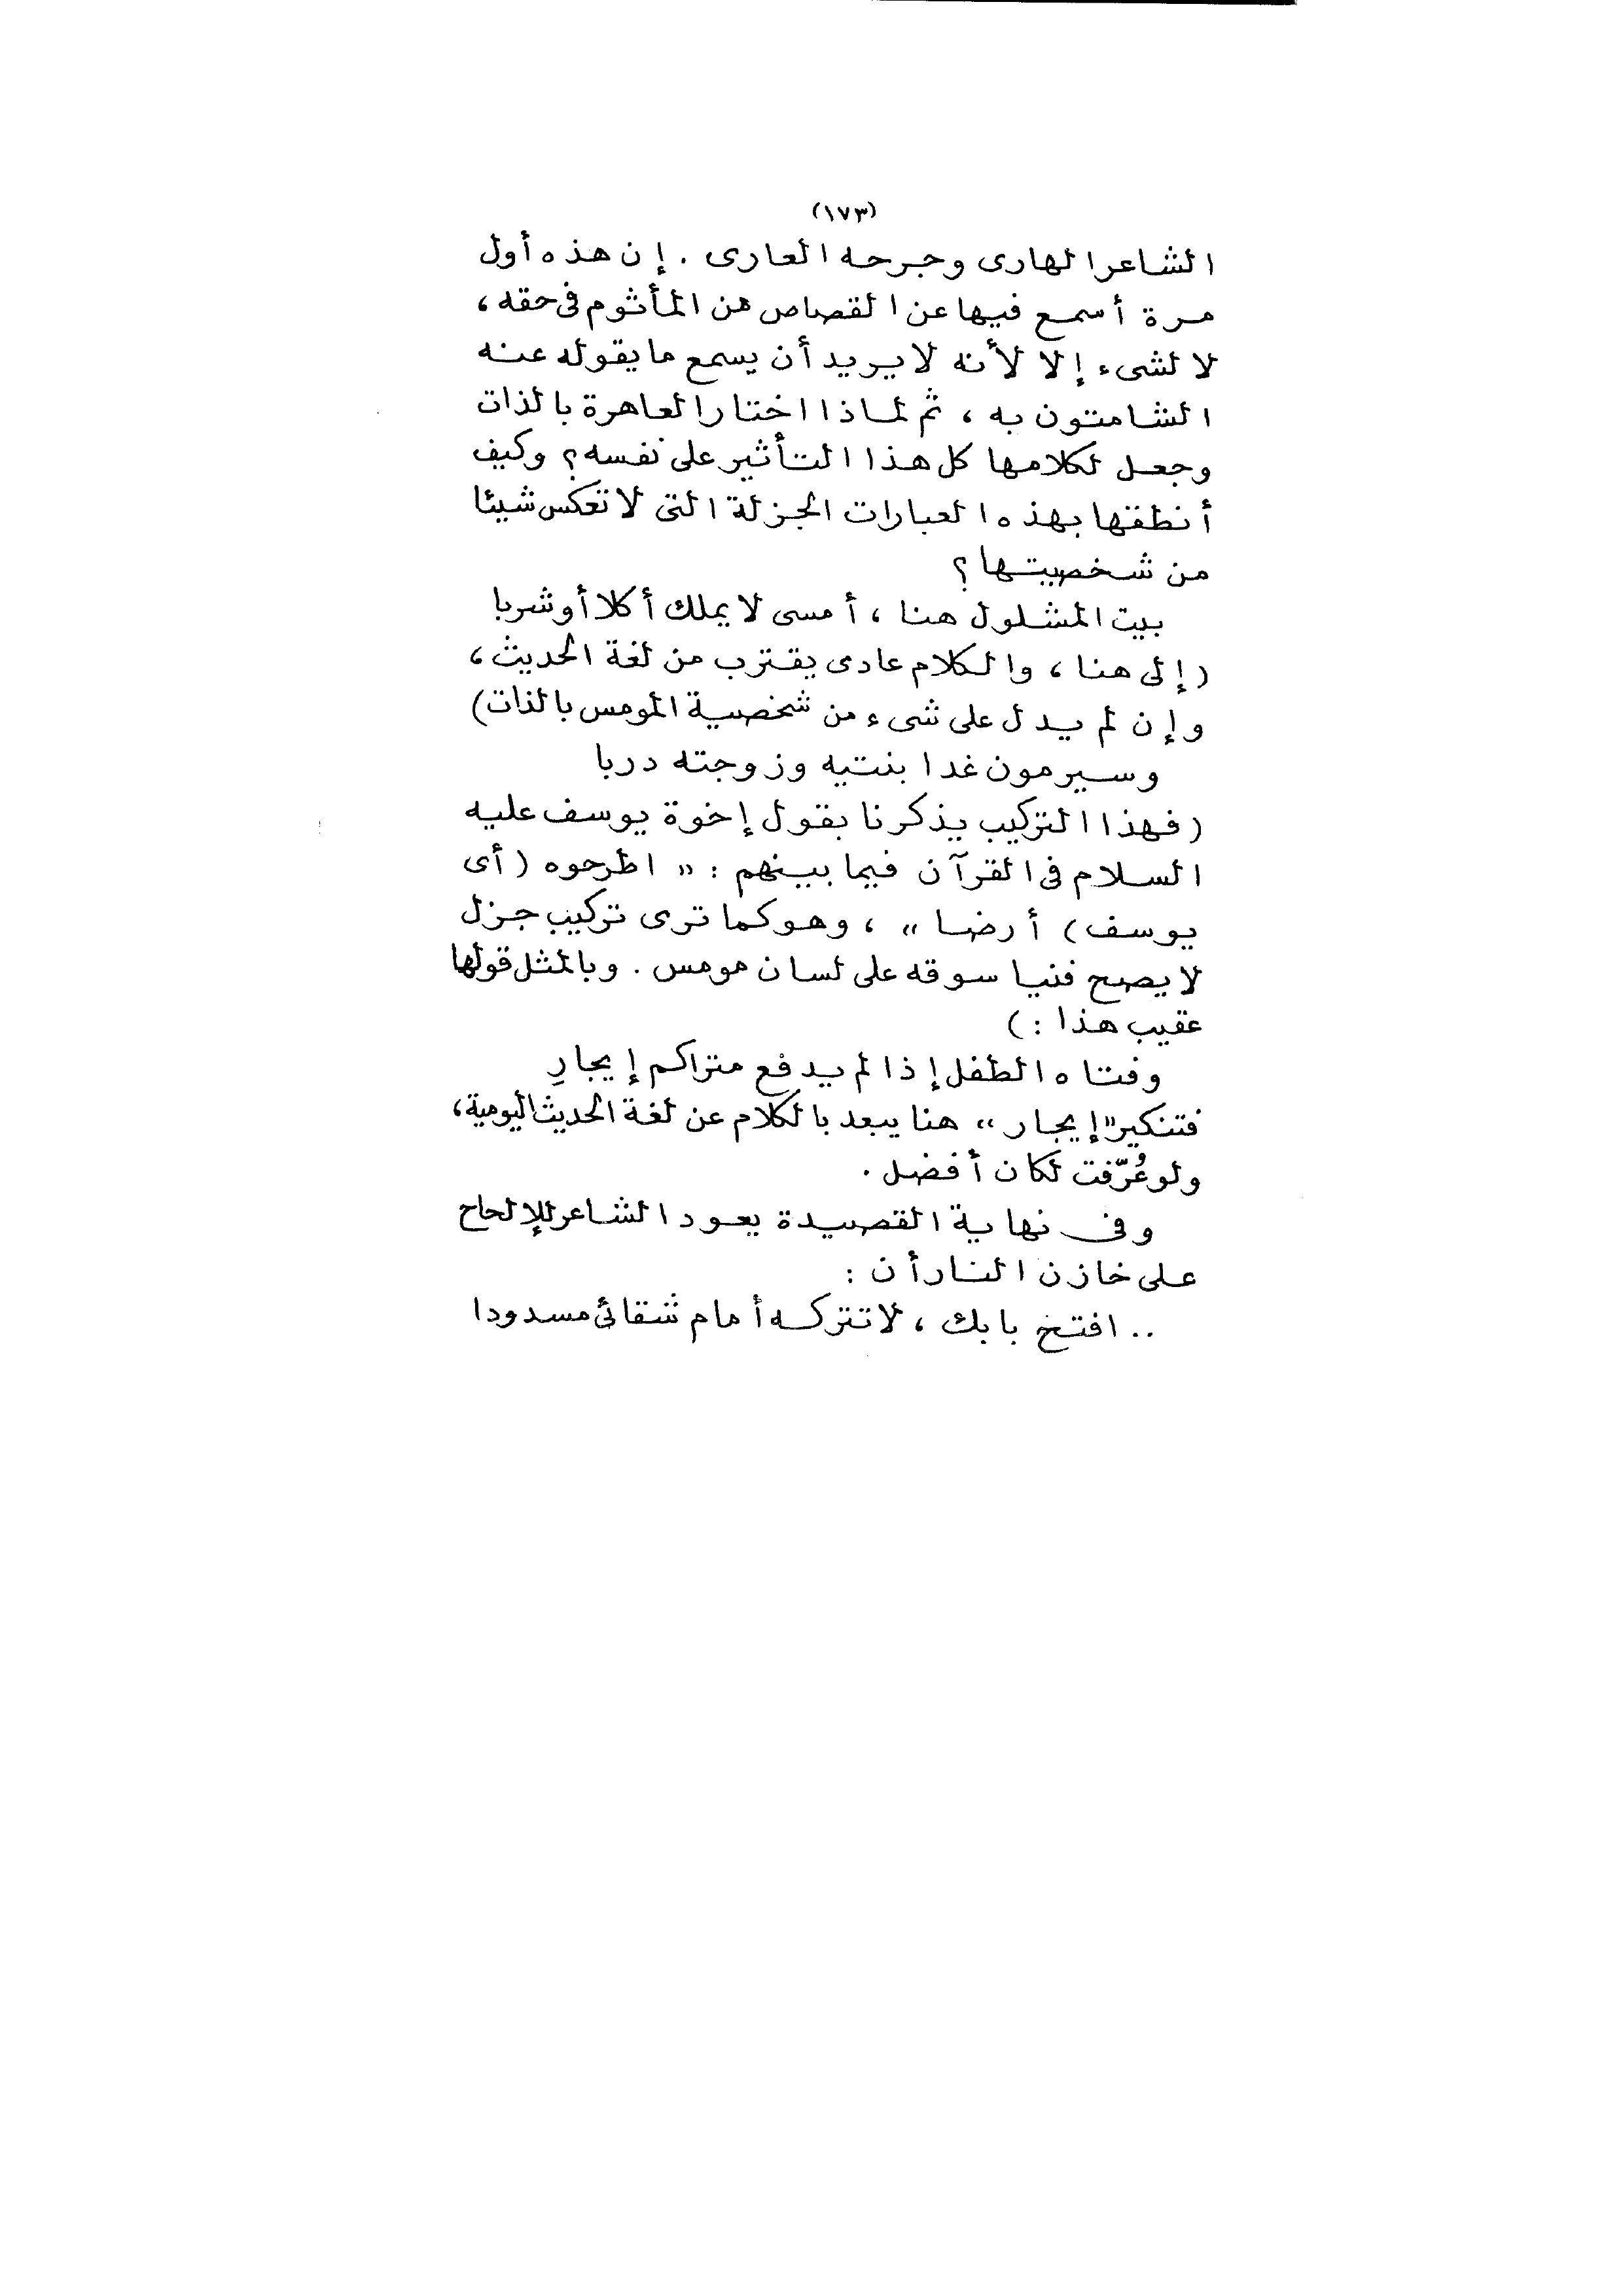 (١٧٣)
الشاعر الهارى وجرحه العارى . إن هذه أول
مرة أسمع فيها عن القصاص من المأثوم فى حقه ،
لا لشىء إلا لأنه لا يريد أن يسمع ما يقوله عنه
الشامتون به ، ثم لماذا اختار العاهرة بالذات
وجعل لكلامها كل هذا التأثير على نفسه ؟ وكيف
أنطقها بهذه العبارات الجزلة التى لا تعكس شيئا
من شخصيتها ؟
بيت المشلول هنا ، أمسى لا يملك أكلا أو شربا
( إلى هنا ، والكلام عادى يقترب من لغة الحديث ،
وإن لم يدل على شىء من شخصية المومس بالذات )
وسيرمون غدا بنتيه وزوجته دربا
( فهذا التركيب يذكرنا بقول إخوة يوسف عليه
السلام فى القرآن فيما بينهم : " اطرحوه ( أى
يوسف ) أرضا " ، وهو كما ترى تركيب جزل
لا يصح فنيا سوقه على لسان مومس . وبالمثل قولها
عقيب هذا : )
وفتاه الطفل إذا لم يدفع متراكم إيجارِ
فتنكير " إيجار " هنا يبعد بالكلام عن لغة الحديث اليومية ،
ولو عُرّفت لكان أفضل .
وفى نهاية القصيدة يعود الشاعر للإلحاح
على خازن النار أن :
.. افتح بابك ، لا تتركه أمام شقائى مسدودا